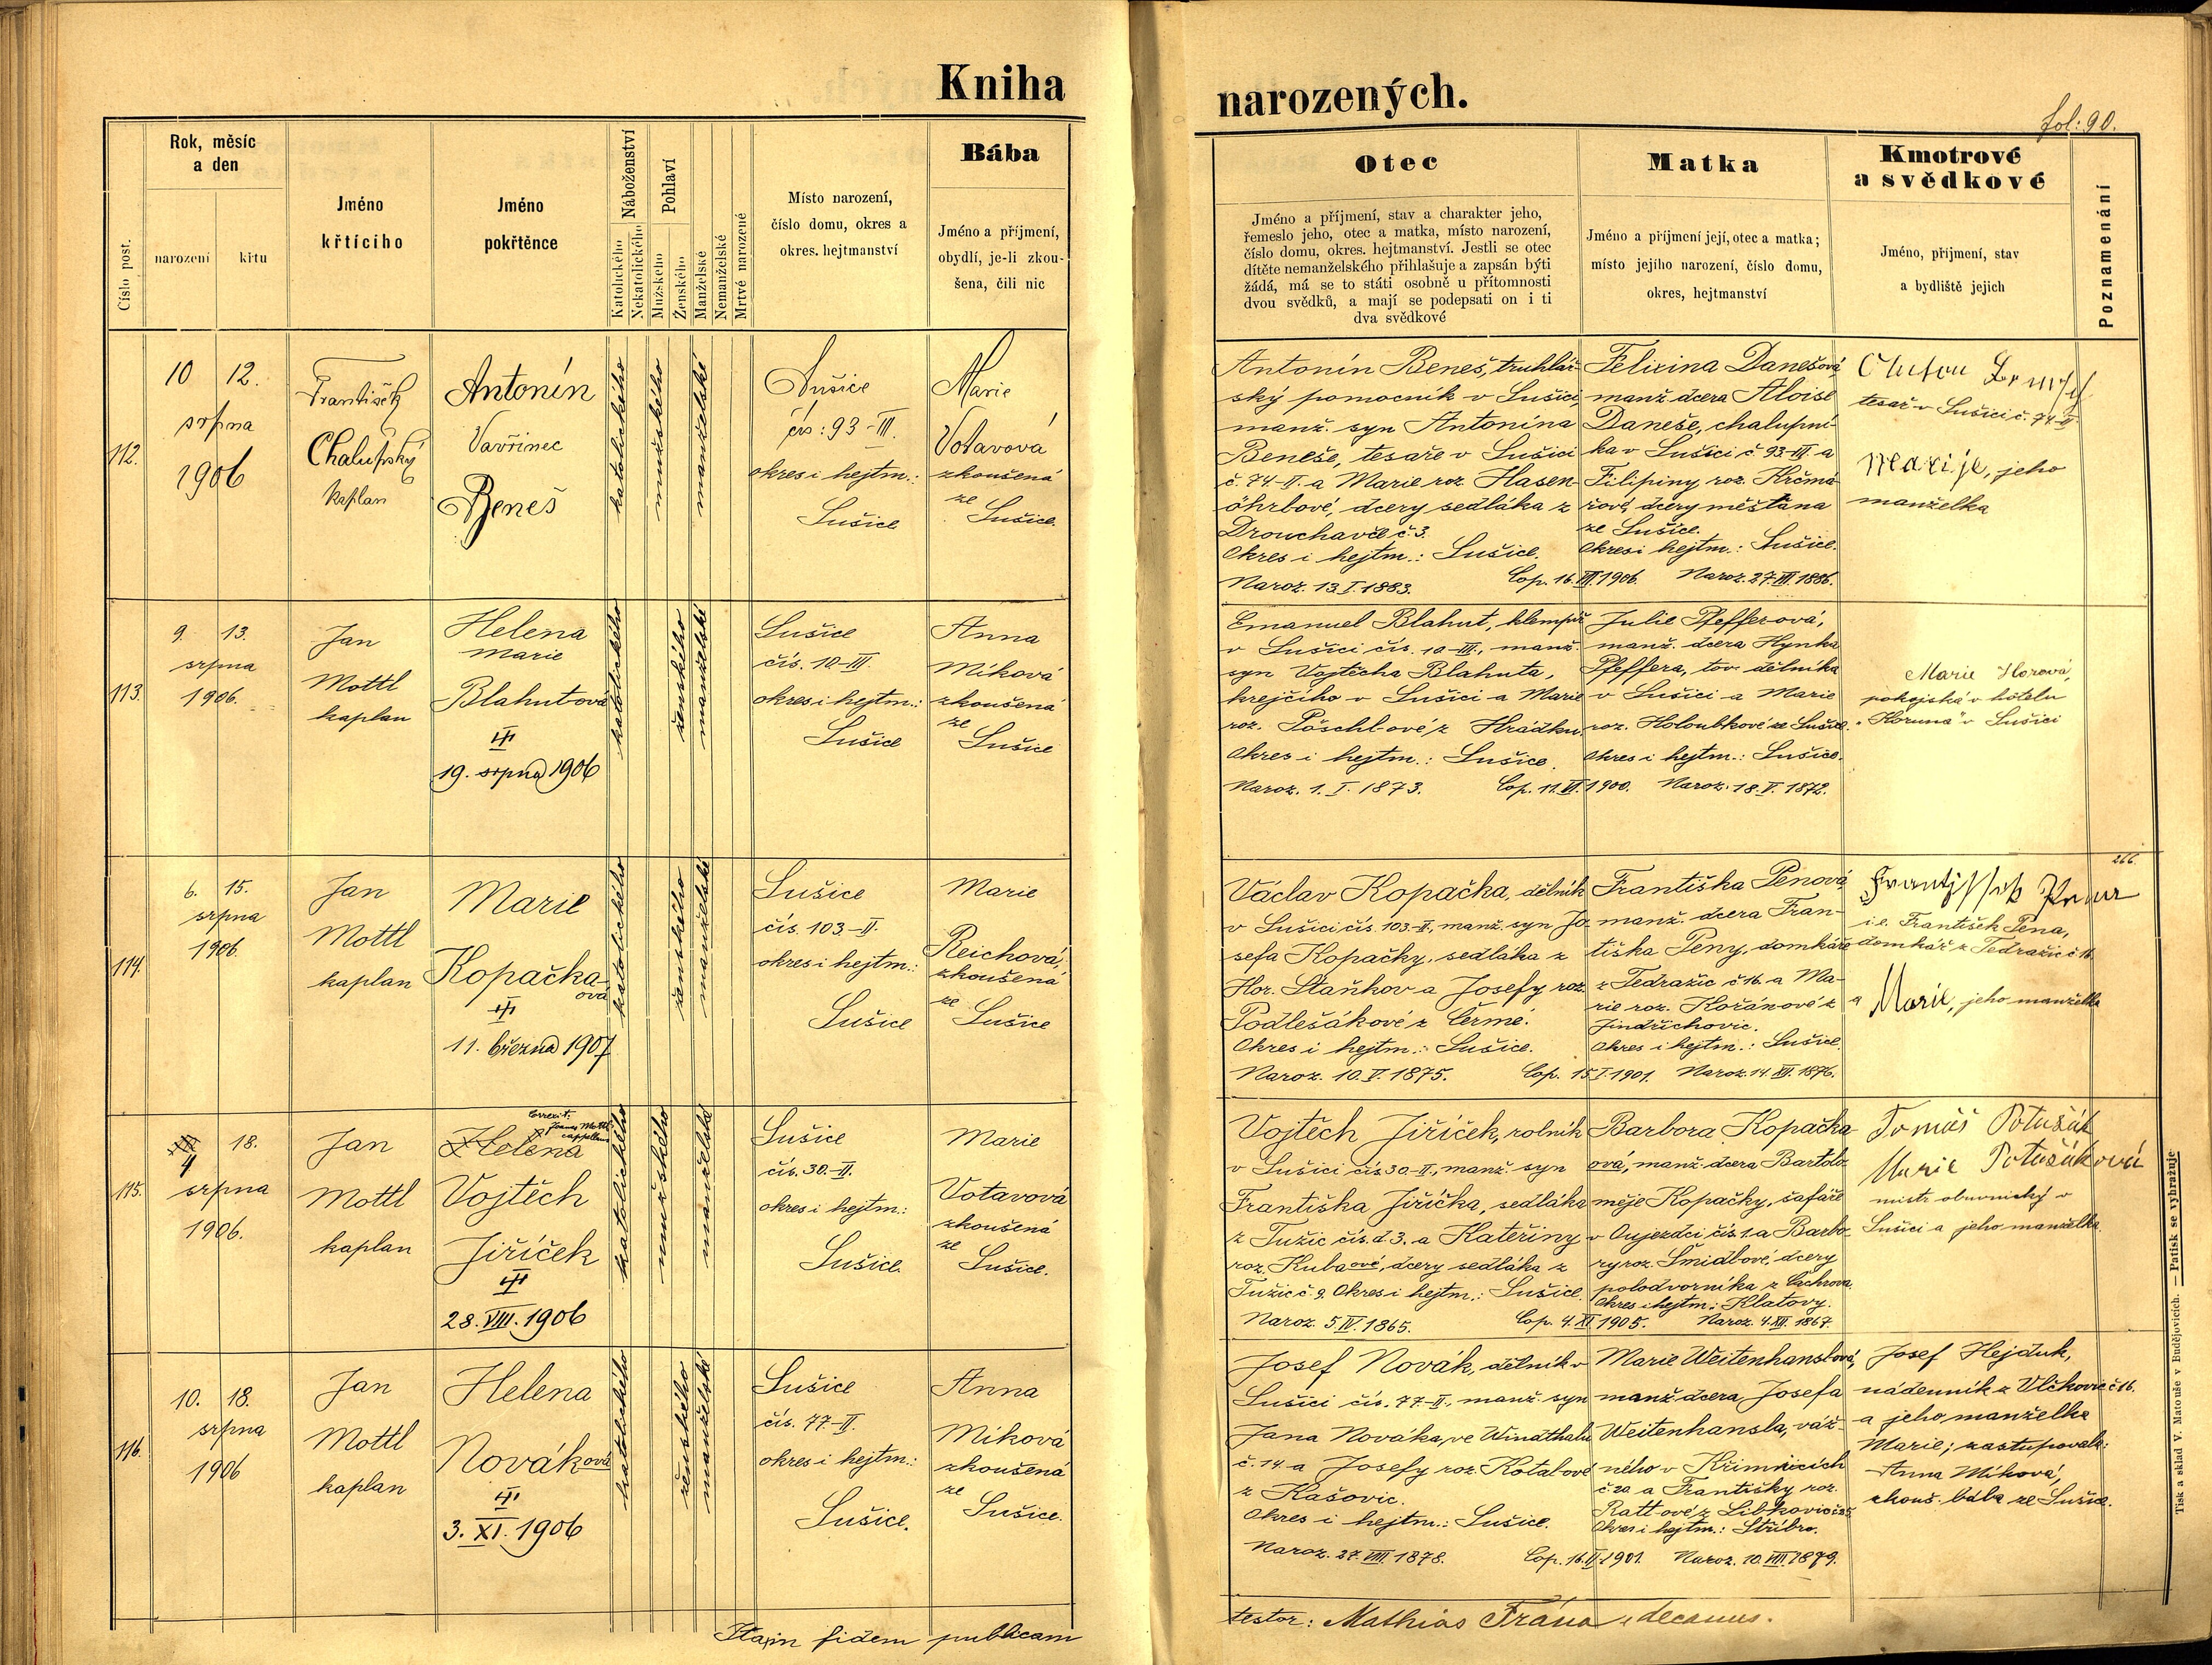 Kniha
narozených.
fol: 90.
Číslo post.
Rok, měsíc
a den
narození
křtu
Jméno
křtícího
Jméno
pokřtěnce
Náboženství
Katolického
Nekatolického
Pohlaví
Mužského
Ženského
Manželské
Nemanželské
Mrtvě narozené
Místo narození,
číslo domu, okres a
okres. hejtmanství
Bába
Jméno a příjmení,
obydlí, je-li zkou-
šena, čili nic
Otec
Jméno a příjmení, stav a charakter jeho,
řemeslo jeho, otec a matka, místo narození,
číslo domu, okres. hejtmanství. Jestli se otec
dítěte nemanželského přihlašuje a zapsán býti
žádá, má se to státi osobně u přítomnosti
dvou svědků, a mají se podepsati on i ti
dva svědkové
Matka
Jméno a příjmení její, otec a matka;
místo jejího narození, číslo domu,
okres, hejtmanství
Kmotrové
a svědkové
Jméno, příjmení, stav
a bydliště jejich
Poznamenání
112.
10 12.
srpna
1906
František
Chalupský
kaplan
Antonín
Vavřinec
Beneš
katolického
mužského
manželské
Sušice
čís: 93-III.
okres i hejtm.:
Sušice
Marie
Votavová
zkoušená
ze
Sušice.
Antonín Beneš, truhlář-
ský pomocník v Sušici,
manž. syn Antonína
Beneše, tesaře v Sušici
č. 74-II. a Marie roz. Hasen-
öhrlové, dcery sedláka z
Drouhavče č. 3.
Okres i hejtm.: Sušice.
Naroz. 13. I. 1883. Cop. 16. III. 1906.
Felixina Danešová
manž. dcera Aloise
Daneše, chalupní-
ka v Sušici č 93-III. a
Filipiny roz. Krčmá-
řové, dcery měštana
ze Sušice.
Okres i hejtm.: Sušice.
Naroz. 27. III. 1886.
tesař v Sušici č. 74-II.
Marije, jeho
manželka
113.
9. 13.
srpna
1906.
Jan
Mottl
kaplan
Helena
Marie
Blahutová
19. srpna 1906
katolického
ženského
manželské
Sušice
čís. 10-III.
okres i hejtm.:
Sušice
Anna
Míková
zkoušená
ze
Sušice
Emanuel Blahut, klempíř
v Sušici čís. 10-III., manž.
syn Vojtěcha Blahuta,
krejčího v Sušici a Marie
roz. Pöschl-ové z Hrádku
Okres i hejtm.: Sušice.
Naroz. 1. I. 1873. Cop. 11. VI. 1900.
Julie Pfefferová,
manž. dcera Hynka
Pfeffera, tov. dělníka
v Sušici a Marie
roz. Holoubkové ze Sušice.
Okres i hejtm.: Sušice.
Naroz. 18. V. 1872.
Marie Horová,
pokojská v hôtelu
"Koruna" v Sušici
114.
6. 15.
srpna
1906.
Jan
Mottl
kaplan
Marie
Kopačka-
ová
11. března 1907
katolického
ženského
manželské
Sušice
čís. 103-II.
okres i hejtm.:
Sušice
Marie
Reichová,
zkoušená
ze
Sušice
Václav Kopačka, dělník
v Sušici čís. 103-II., manž. syn Jo-
sefa Kopačky, sedláka z
Hor. Staňkov a Josefy roz.
Podlešákové z Čermé.
Okres i hejtm.: Sušice.
Naroz. 10. V. 1875. Cop. 15. I. 1901.
Františka Penová
manž. dcera Fran-
tiška Peny, domkáře
z Tedražic č 16. a Ma-
rie roz. Kořánové z
Jindřichovic.
Okres i hejtm.: Sušice.
Naroz. 14. XII. 1876.
266.
i.e. František Pena,
domkář z Tedražic č 16.
a Marie, jeho manželka
115.
4 18.
srpna
1906.
Jan
Mottl
kaplan
Correxit:
Joannes Mottl
cappellanus
Helena
Vojtěch
Jiříček
28. VIII. 1906
katolického
mužského
manželské
Sušice
čís. 30-II.
okres i hejtm.:
Sušice.
Marie
Votavová
zkoušená
ze
Sušice.
Vojtěch Jiříček, rolník
v Sušici čís. 30-II., manž. syn
Františka Jiříčka, sedláka
z Tužic čís. d 3. a Kateřiny
roz. Kubaové, dcery sedláka z
Tužic č. 9. Okres i hejtm.: Sušice.
Naroz. 5. IV. 1865. Cop. 4. XI. 1905.
Barbora Kopačka
ová, manž. dcera Bartolo-
měje Kopačky, šafáře
v Oujezdci čís. 1. a Barbo-
ry roz. Šmidlové, dcery
polodvorníka z Čachrova.
Okres i hejtm.: Klatovy.
Naroz. 4. XII. 1867.
Tomáš Potušák
Marie Potušáková
mistr obuvnický v
Sušici a jeho manželka
116.
10. 18.
srpna
1906
Jan
Mottl
kaplan
Helena
Nováková
3. XI. 1906
katolického
ženského
manželské
Sušice
čís. 77-II.
okres i hejtm.:
Sušice.
Anna
Míková
zkoušená
ze
Sušice.
Josef Novák, dělník v
Sušici čís. 77-II., manž. syn
Jana Nováka, ve Winathalu
č. 14 a Josefy roz. Kotalové
z Kašovic.
Okres i hejtm.: Sušice.
Naroz. 27. VIII. 1878. Cop. 16. II. 1901.
Marie Weitenhanslová,
manž. dcera Josefa
Weitenhansla, váž-
ného v Křimicích
č 20. a Františky roz.
Ratt-ové z Libkovic č 35.
Okres i hejtm.: Stříbro.
Naroz. 10. VIII. 1879.
Josef Hejduk,
nádenník z Vlčkovic č 16.
a jeho manželka
Marie; zastupovala:
Anna Míková,
zkouš. bába ze Sušice.
fidem publicam
testor: Mathias Frána, decanus.
Tisk a sklad V. Matouše v Budějovicích. — Patisk se vyhražuje